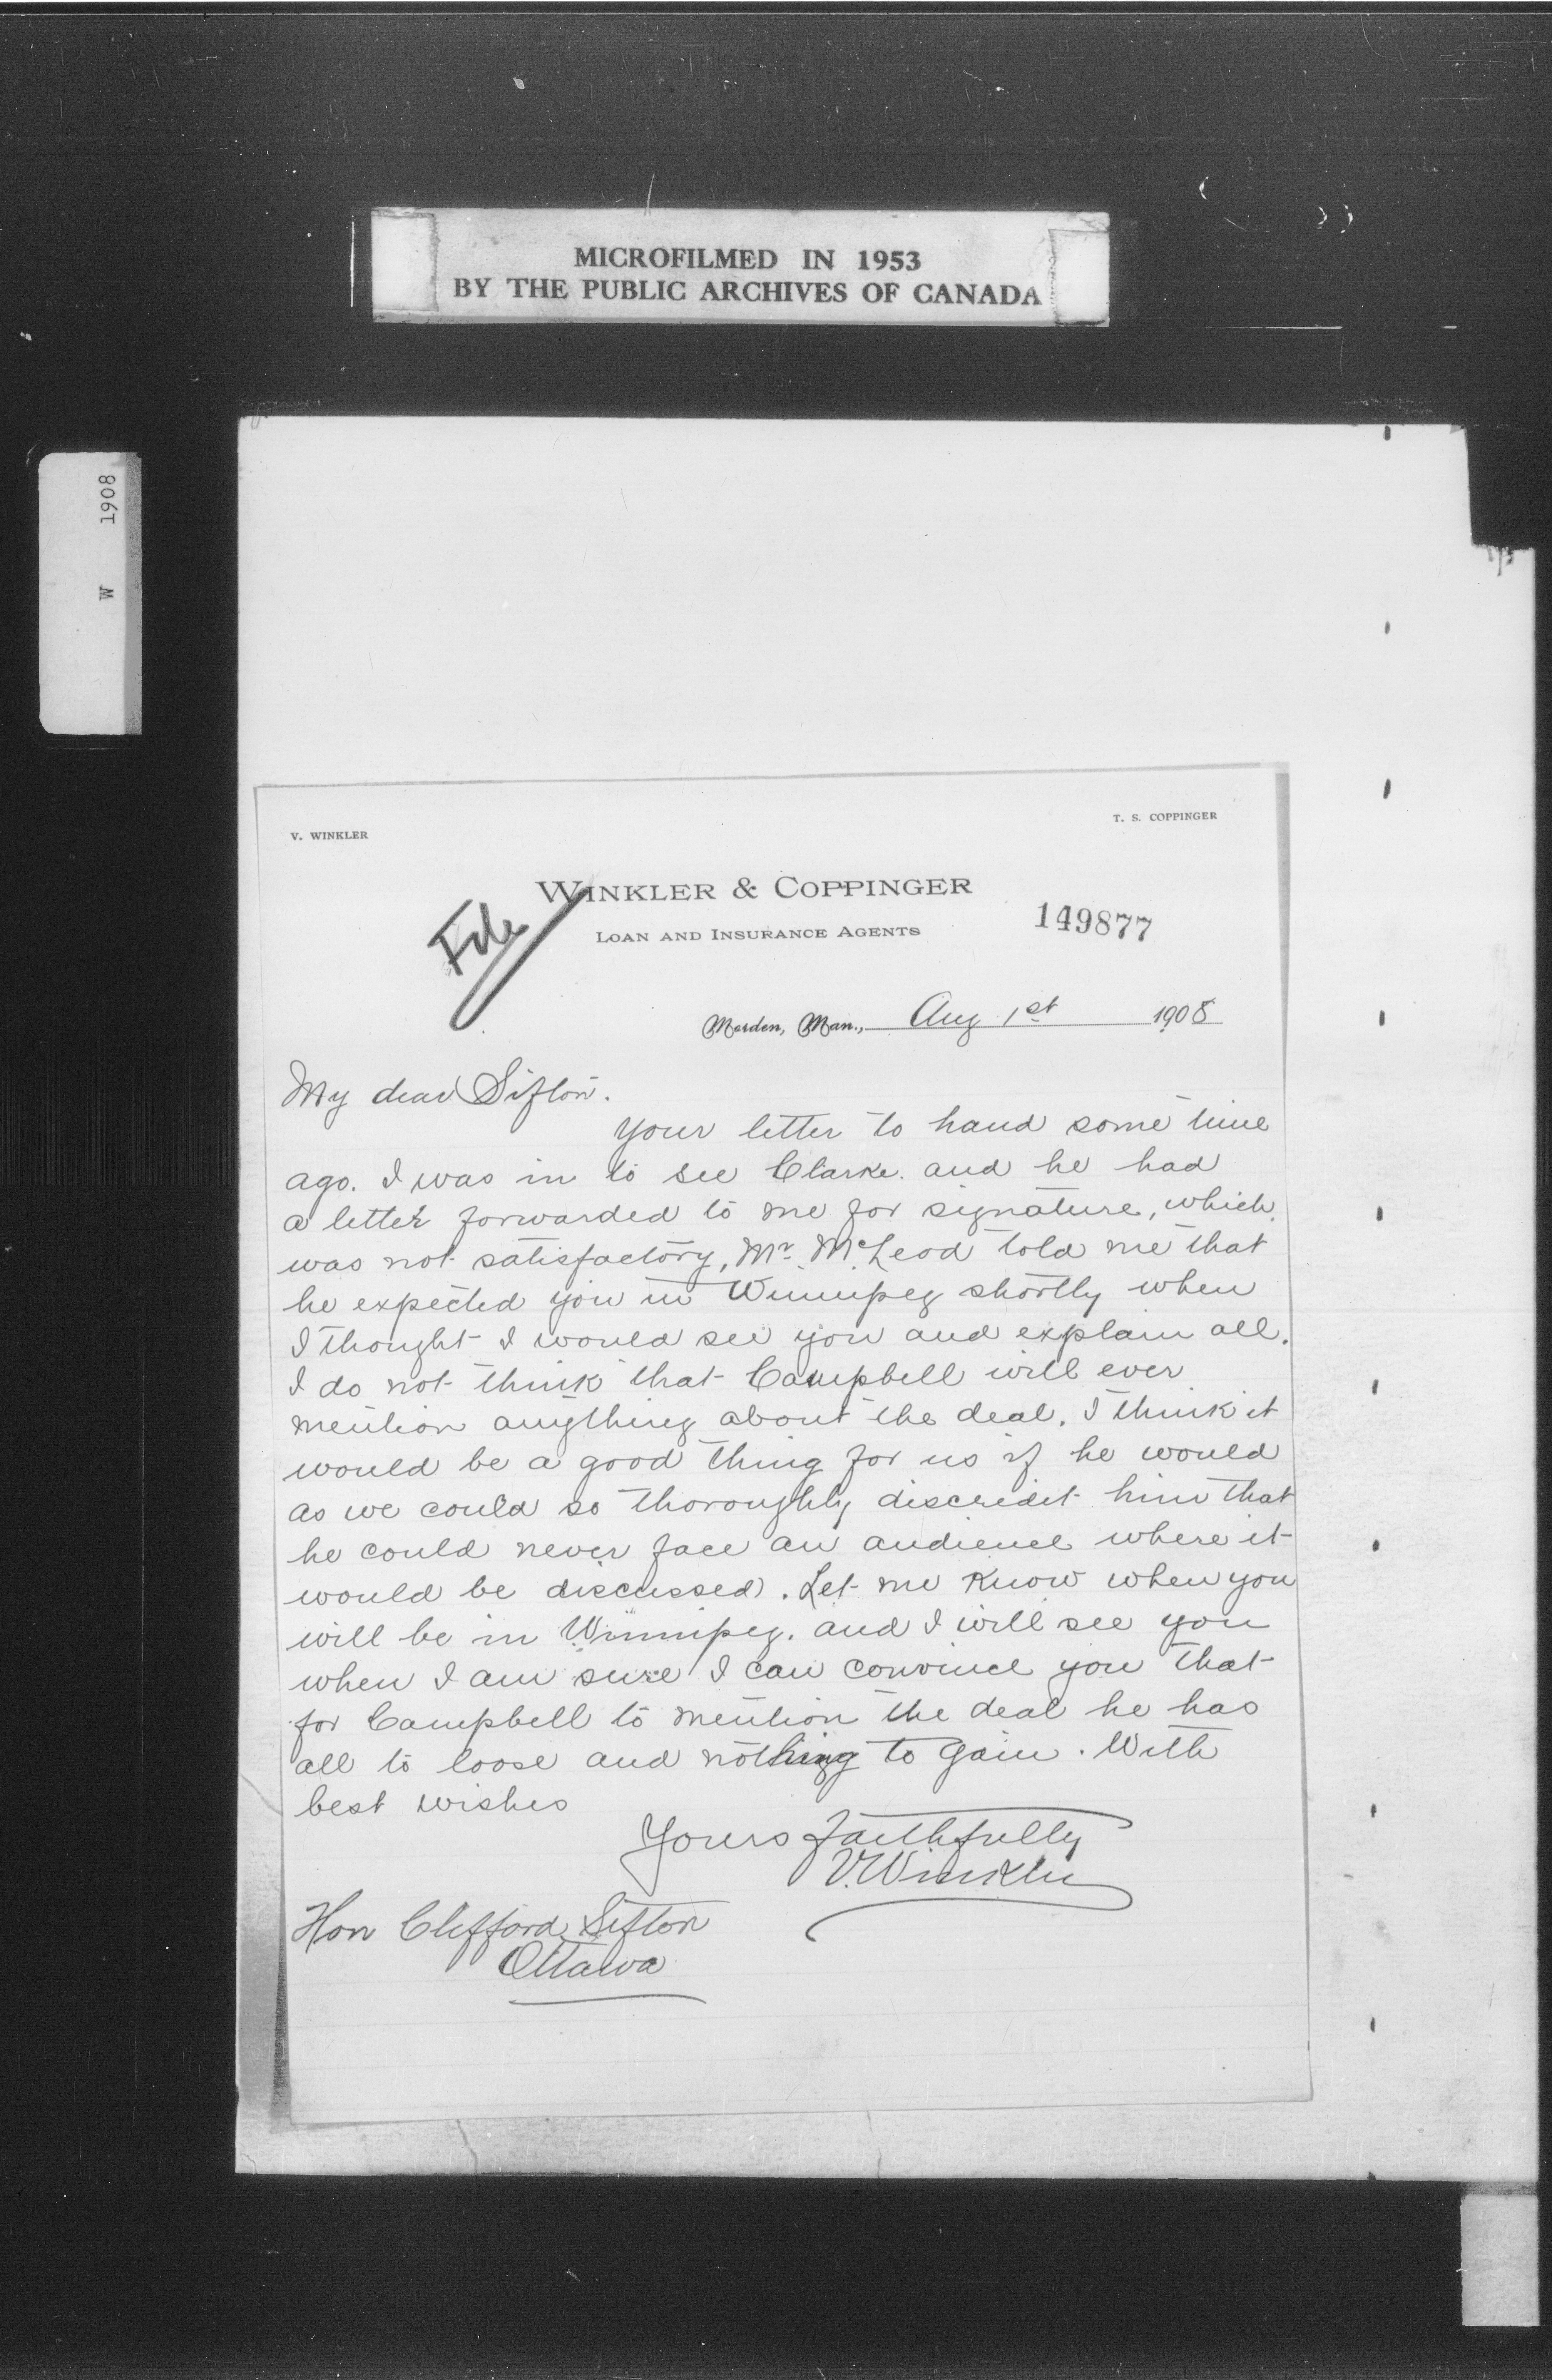 MICROFILMED IN 1953
BY THE PUBLIC ARCHIVES OF CANADA
W 1908
V. WINKLER
T. S. COPPINGER
WINKLER & COPPINGER
File
LOAN AND INSURANCE AGENTS
149877
Morden, Man., Aug 1st 1908
My dear Sifton.
Your letter to hand some time
ago. I was in to see Clarke. and he had
a letter forwarded to me for signature, which
was not satisfactory, Mr. McLeod told me that
he expected you in Winnipeg shortly when
I thought I would see you and explain all.
I do not think that Campbell will ever
mention anything about the deal. I think it
would be a good thing for us if he would
as we could so thoroughly discredit him that
he could never face an audience where it
would be discussed. Let me know when you
will be in Winnipeg. and I will see you
when I am sure I can convince you that
for Campbell to mention the deal he has
all to loose and nothing to gain. With
best wishes
Yours faithfully
V. Winkler
Hon Clifford Sifton
Ottawa